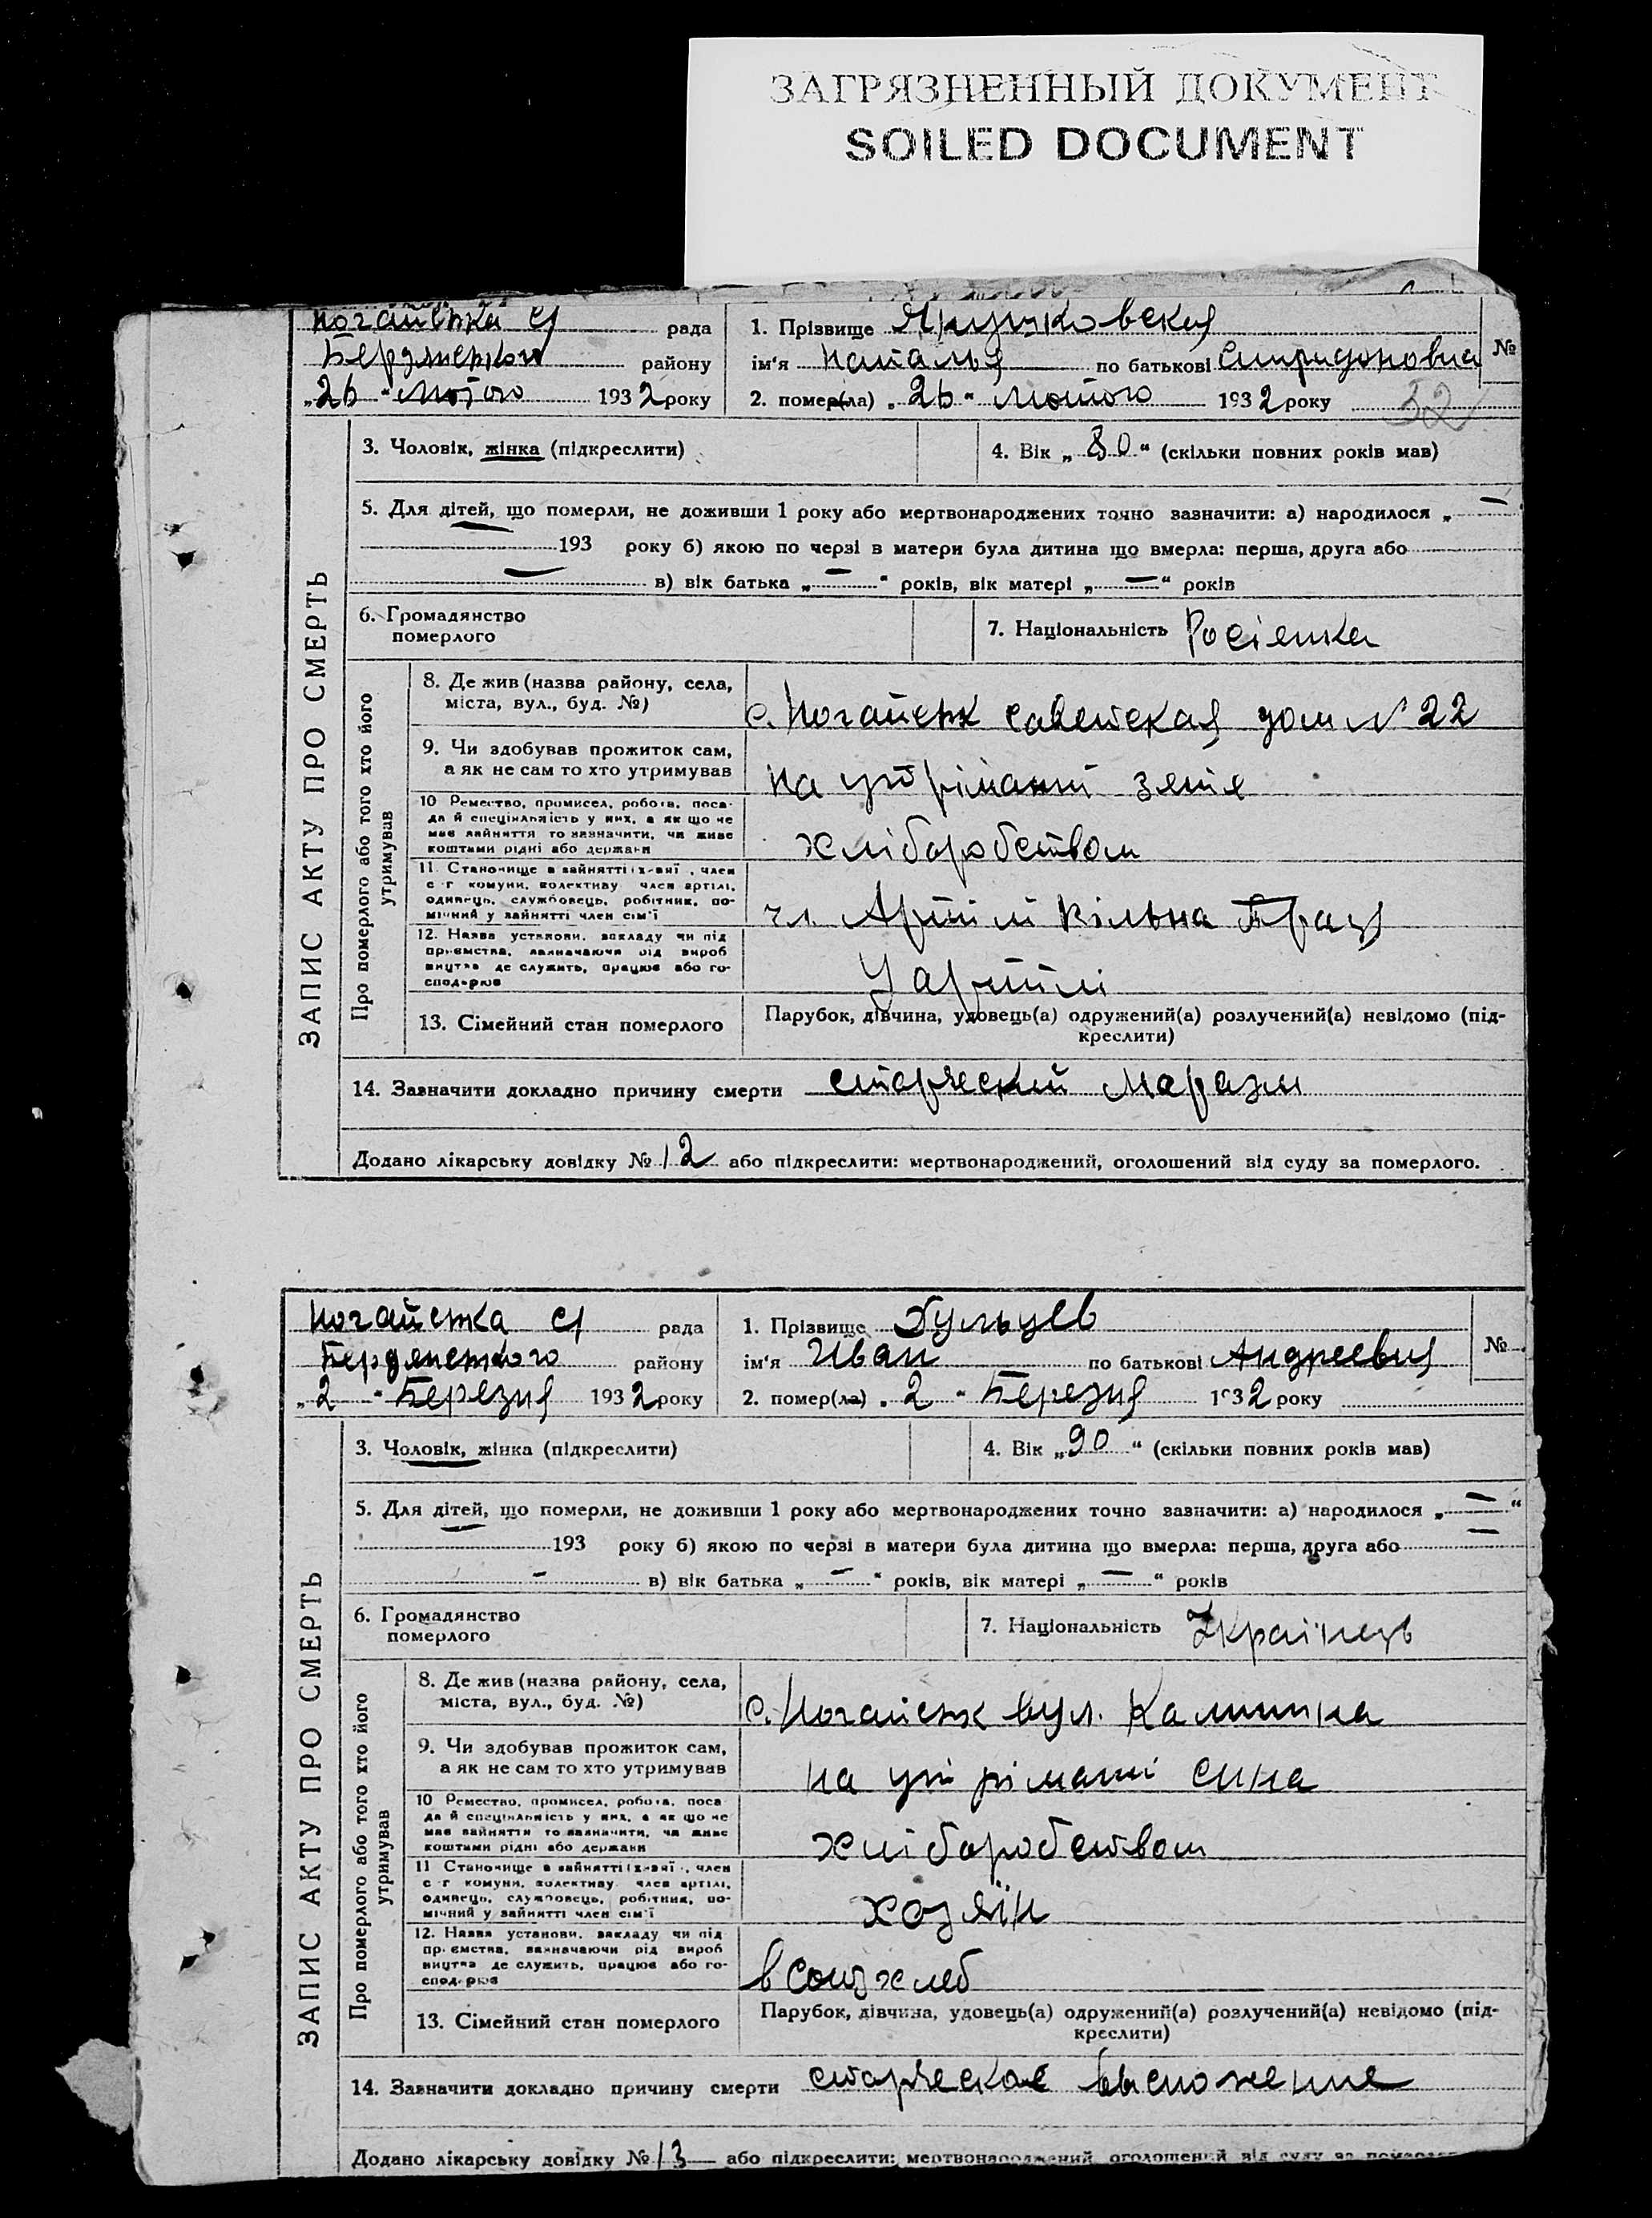 ЗАГРЯЗНЕННЫЙ ДОКУМЕНТ
SOILED DOCUMENT
Ногайська с/ рада
Бердянського району
„26 " Лютого 1932 року
1. Прізвище Янушковская №
ім'я Наталья по батькові Спиридоновна
2. помер(ла) „ 26 " Лютого 1932 року 32
ЗАПИС АКТУ ПРО СМЕРТЬ
3. Чоловік, жінка (підкреслити)
4. Вік „ 80 " (скільки повних років мав)
5. Для дітей, що померли, не доживши 1 року або мертвонароджених точно зазначити: а) народилося „ —
193 року б) якою по черзі в матери була дитина що вмерла: перша, друга або
— в) вік батька „ — " років, вік матері „ — " років
6. Громадянство
померлого
7. Національність Росіянка
Про померлого або того хто його
утримував
8. Де жив (назва району, села,
міста, вул., буд. №)
с. Ногайськ Советская дом № 22
9. Чи здобував прожиток сам,
а як не сам то хто утримував
На утріманні зятя
10 Ремество, промисел, робота, поса-
да й спеціяльність у них, а як що не
має зайняття то зазначити, чи живе
коштами рідні або держави
хліборобством
11. Становище в зайнятті (х-вні, член
с-г комуни, колективу член артілі,
одинець, службовець, робітник, по-
мічний у зайнятті член сім'ї
чл. Артіли Вільна Праця
12. Назва установи, закладу чи під
приємства, зазначаючи рід вироб
ництва де служить, працює або го-
сподарює
У артілі
13. Сімейний стан померлого
Парубок, дівчина, удовець(а) одружений(а) розлучений(а) невідомо (під-
креслити)
14. Зазначити докладно причину смерти старческий Маразм
Додано лікарську довідку № 12 або підкреслити: мертвонароджений, оголошений від суду за померлого.
Ногайська с/ рада
Бердянського району
„ 2 " Березня 1932 року
1. Прізвище Хульцев №
ім'я Иван по батькові Андреевич
2. помер(ла) „ 2 " Березня 1932 року
ЗАПИС АКТУ ПРО СМЕРТЬ
3. Чоловік, жінка (підкреслити)
4. Вік „ 90 " (скільки повних років мав)
5. Для дітей, що померли, не доживши 1 року або мертвонароджених точно зазначити: а) народилося „ — "
193 року б) якою по черзі в матери була дитина що вмерла: перша, друга або —
— в) вік батька „ — " років, вік матері „ — " років
6. Громадянство
померлого
7. Національність Українець
Про померлого або того хто його
утримував
8. Де жив (назва району, села,
міста, вул., буд. №)
с. Ногайськ вул. Калинина
9. Чи здобував прожиток сам,
а як не сам то хто утримував
на утріманні сина
10 Ремество, промисел, робота, поса
да й спеціяльність у них, а як що не
має зайняття то зазначити, чи живе
коштами рідні або держави
хліборобством
11 Становище в зайнятті (х-вні, член
с-г комуни, колективу член артілі,
одинець, службовець, робітник, по-
мічний у зайнятті член сім'ї
хозяїн
12. Назва установи, закладу чи під
приємства, зазначаючи рід вироб
ництва де служить, працює або го-
сподарює
в Союзхлеб
13. Сімейний стан померлого
Парубок, дівчина, удовець(а) одружений(а) розлучений(а) невідомо (під-
креслити)
14. Зазначити докладно причину смерти старческое
Додано лікарську довідку № 13 або підкреслити: мертвонароджений оголошений від суду за